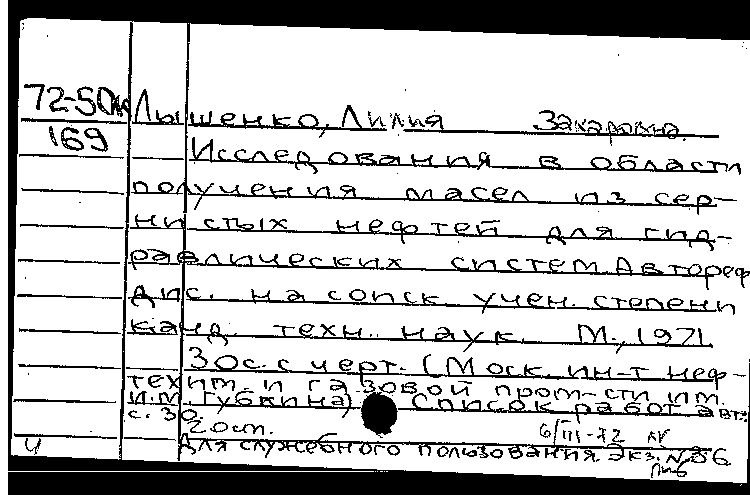 72-50к Лышенко, Лилия Захаровна.
169 Исследования в области
получения масел из сер-
нистых нефтей для гид-
равлических систем. Автореф
дис. на соиск. учен. степени
канд. техн. наук. М., 1971.
30с. с черт. (Моск. ин-т неф-
техим. и газовой пром-сти им.
И.М. Губкина) Список работ авт:
с. 30.
20 ст. 6/III-72
ч Для служебного пользования. Экз. №86